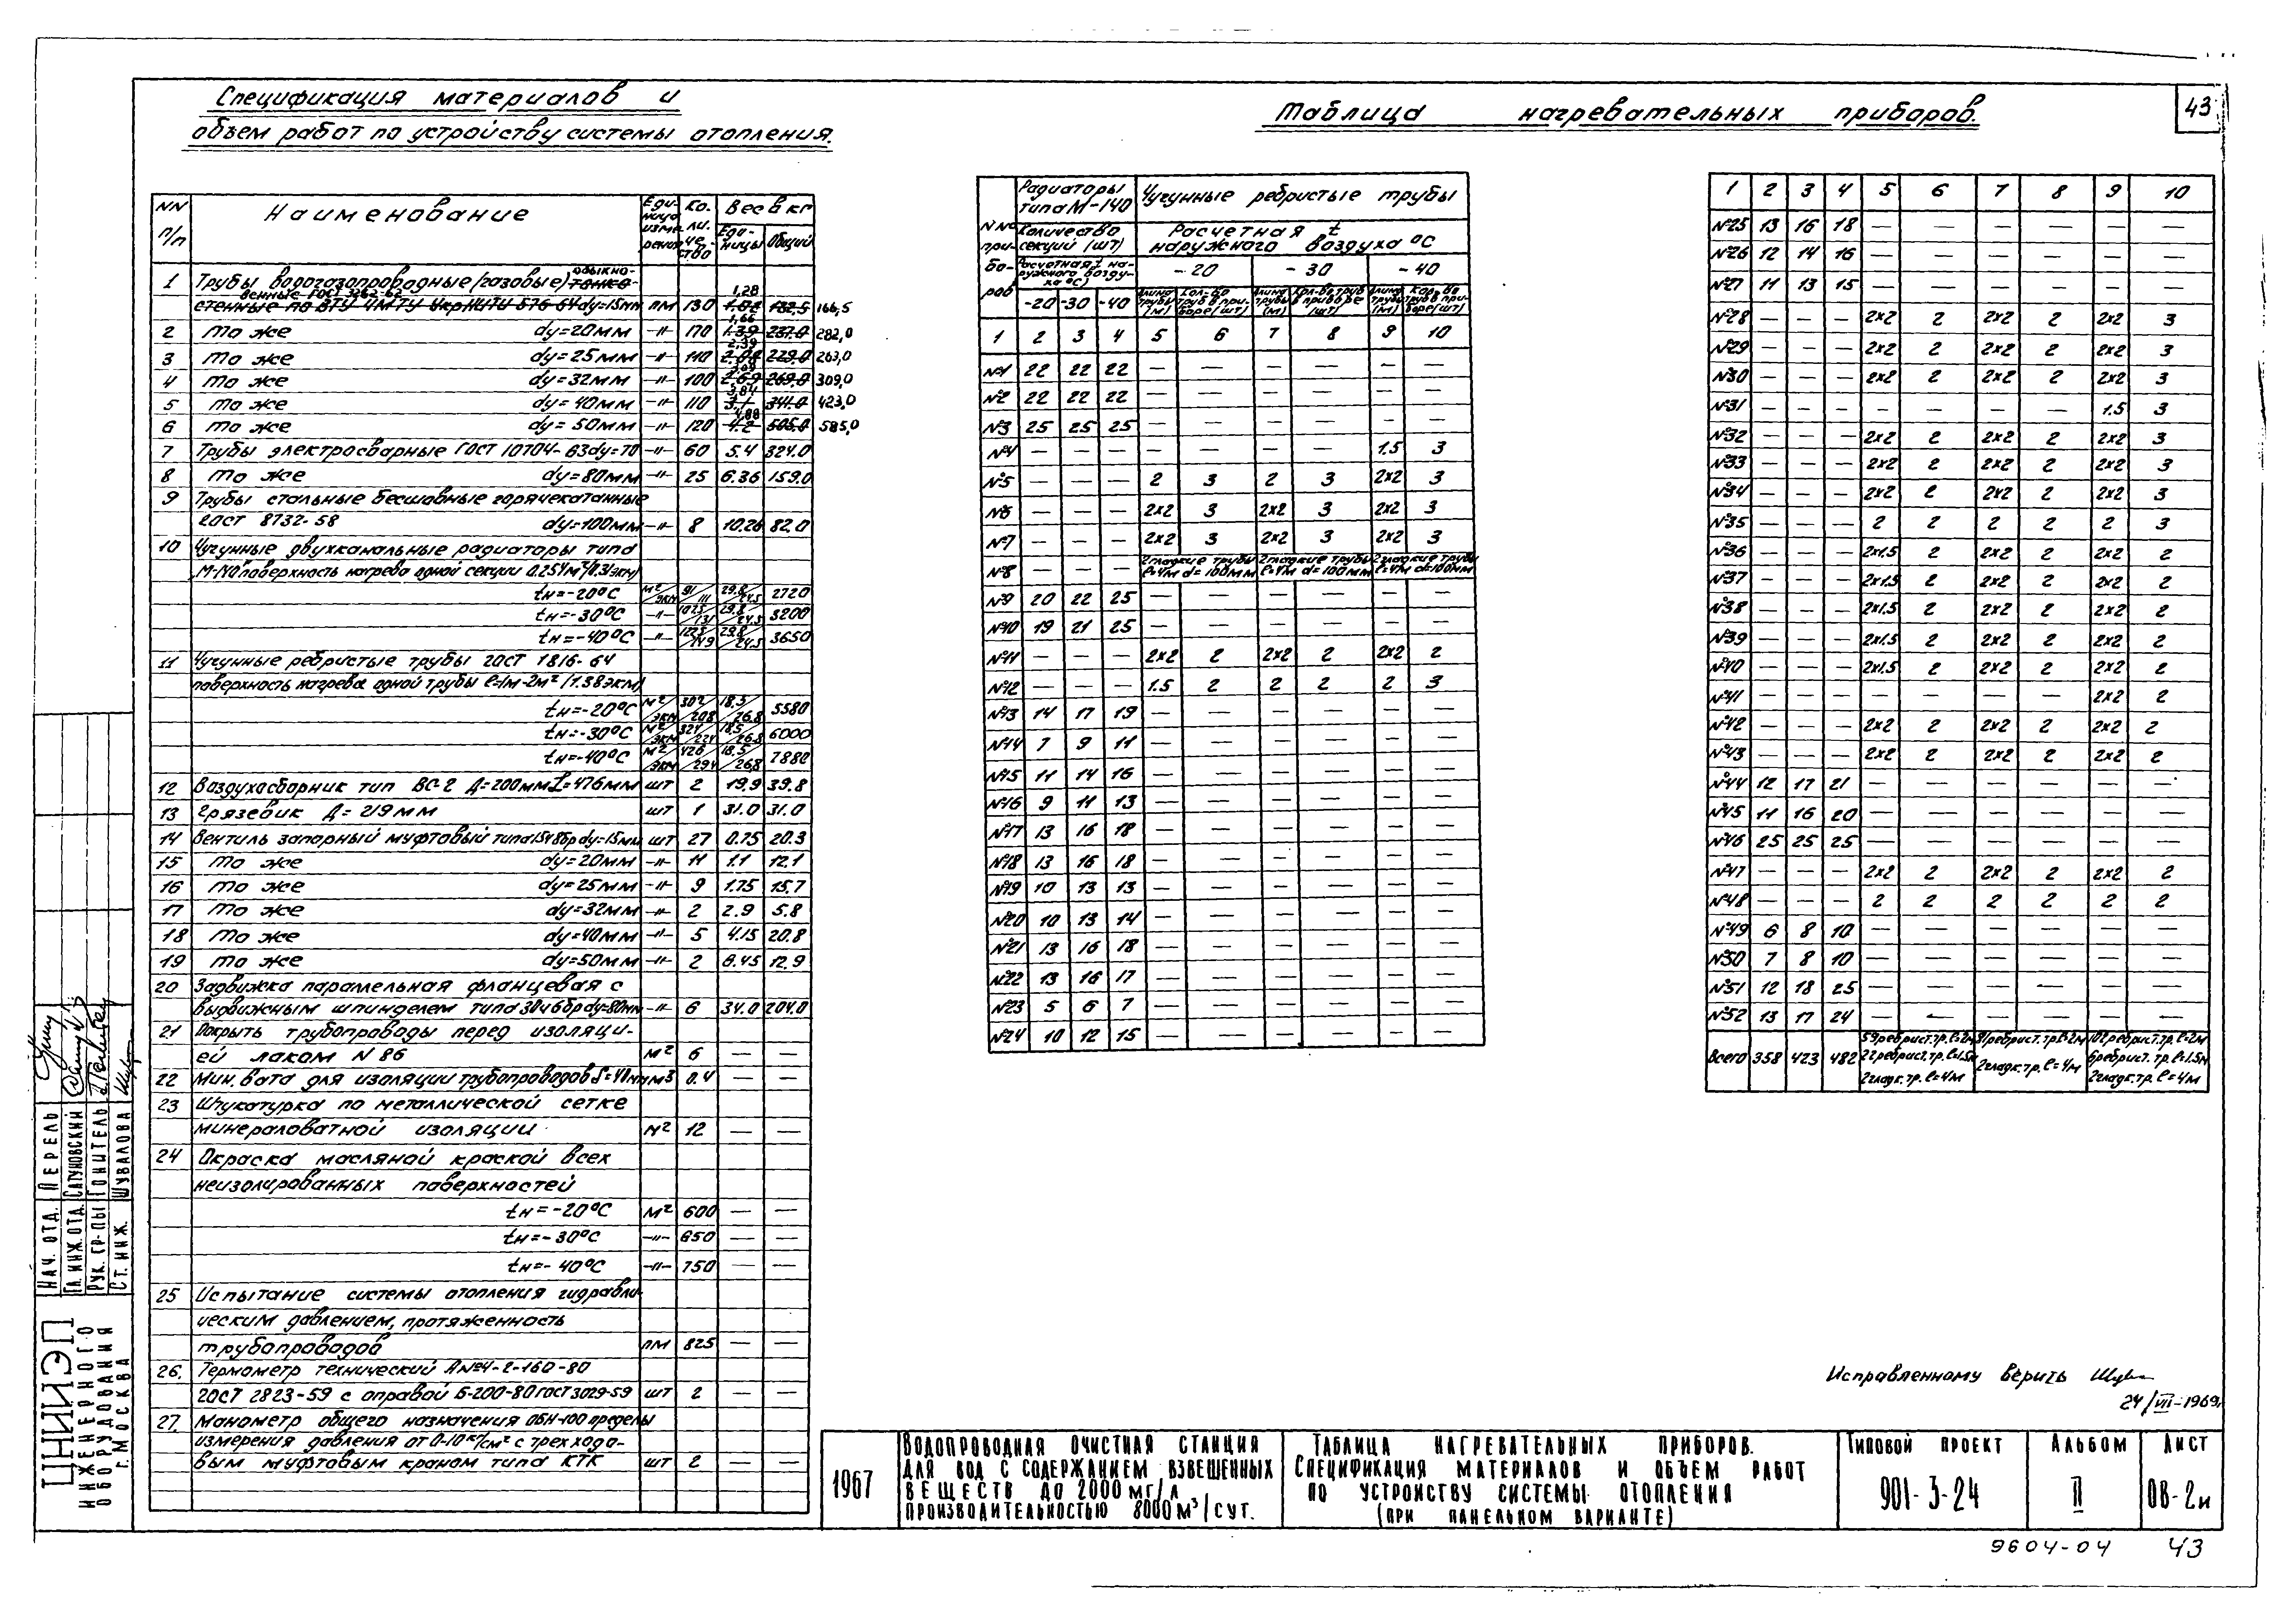 43
Спецификация материалов и
объем работ по устройству системы отопления.
NN п/п | Наименование | Единица измерения | Количество | Вес в кг
Единицы | Общий
1 Трубы водогазопроводные (газовые) обыкно-
венные ГОСТ 3262-62 dy=15мм пм 130 1,28 182,5 166,5
2 то же dy=20мм -"- 170 1,66 1.39 237.0 282,0
3 то же dy=25мм -"- 110 2,39 229.0 263,0
4 то же dy=32мм -"- 100 3,09 2.69 269.0 309,0
5 то же dy=40мм -"- 110 3,84 3.1 341.0 423,0
6 то же dy=50мм -"- 120 4,88 4.2 505.0 585,0
7 Трубы электросварные ГОСТ 10704-63 dy=70 -"- 60 5.4 324.0
8 то же dy=80мм -"- 25 6.36 159.0
9 Трубы стальные бесшовные горячекатанные
ГОСТ 8732-58 dy=100мм -"- 8 10.26 82.0
10 Чугунные двухканальные радиаторы типа
„М-140" поверхность нагрева одной секции 0.254м²/0.31экм)
tн=-20°С м²/экм 91/111 29.8/24.5 2720
tн=-30°С -"- 102.5/131 29.8/24.5 3200
tн=-40°С -"- 122.5/149 29.8/24.5 3650
11 Чугунные ребристые трубы ГОСТ 1816-64
поверхность нагрева одной трубы ℓ=1м-2м² (1.38экм)
tн=-20°С м²/экм 302/208 18.5/26.8 5580
tн=-30°С м²/экм 324/224 18.5/26.8 6000
tн=-40°С м²/экм 426/294 18.5/26.8 7880
12 Воздухосборник тип ВС-2 Д=200мм L=476мм шт 2 19.9 39.8
13 Грязевик Д=219мм шт 1 31.0 31.0
14 Вентиль запорный муфтовый типа 15ч8бр dy=15мм шт 27 0.75 20.3
15 то же dy=20мм -"- 11 1.1 12.1
16 то же dy=25мм -"- 9 1.75 15.7
17 то же dy=32мм -"- 2 2.9 5.8
18 то же dy=40мм -"- 5 4.15 20.8
19 то же dy=50мм -"- 2 6.45 12.9
20 Задвижка параллельная фланцевая с
выдвижным шпинделем типа 30ч6бр dy=80мм -"- 6 34.0 204.0
21 Покрыть трубопроводы перед изоляци-
ей лаком N 86 м² 6 — —
22 Мин. вата для изоляции трубопроводов δ=40мм м3 0.4 — —
23 Штукатурка по металлической сетке
минераловатной изоляции м² 12 — —
24 Окраска масляной краской всех
неизолированных поверхностей
tн=-20°С м² 600 — —
tн=-30°С -"- 650 — —
tн=-40°С -"- 750 — —
25 Испытание системы отопления гидравли-
ческим давлением, протяженность
трубопроводов пм 825 — —
26. Термометр технический А№4-2-160-80
ГОСТ 2823-59 с оправой Б-200-80 ГОСТ 3029-59 шт 2 — —
27. Манометр общего назначения ОБМ-100 пределы
измерения давления от 0-10 кг/см² с трехходо-
вым муфтовым краном типа КТК шт 2 — —
Таблица нагревательных приборов.
NNо приборов | Радиаторы типа М-140 | Чугунные ребристые трубы
Количество секций (шт) | Расчетная t наружного воздуха °С
Расчетная t наружного воздуха °С) | -20 | -30 | -40
-20 -30 -40 | длина трубы (м) | кол-во труб в приборе (шт) | длина трубы (м) | кол-во труб в приборе (шт) | длина трубы (м) | кол-во труб в приборе (шт)
1 2 3 4 5 6 7 8 9 10
№1 22 22 22 — — — — — —
№2 22 22 22 — — — — — —
№3 25 25 25 — — — — — —
№4 — — — — — — — 1.5 3
№5 — — — 2 3 2 3 2x2 3
№6 — — — 2x2 3 2x2 3 2x2 3
№7 — — — 2x2 3 2x2 3 2x2 3
№8 — — — 2 гладкие трубы ℓ=4м d=100мм 2 гладкие трубы ℓ=4м d=100мм 2 гладкие трубы ℓ=4м d=100мм
№9 20 22 25 — — — — — —
№10 19 21 25 — — — — — —
№11 — — — 2x2 2 2x2 2 2x2 2
№12 — — — 1.5 2 2 2 2 3
№13 14 17 19 — — — — — —
№14 7 9 11 — — — — — —
№15 11 14 16 — — — — — —
№16 9 11 13 — — — — — —
№17 13 16 18 — — — — — —
№18 13 16 18 — — — — — —
№19 10 13 13 — — — — — —
№20 10 13 14 — — — — — —
№21 13 16 18 — — — — — —
№22 13 16 17 — — — — — —
№23 5 6 7 — — — — — —
№24 10 12 15 — — — — — —
1 2 3 4 5 6 7 8 9 10
№25 13 16 18 — — — — — —
№26 12 14 16 — — — — — —
№27 11 13 15 — — — — — —
№28 — — — 2x2 2 2x2 2 2x2 3
№29 — — — 2x2 2 2x2 2 2x2 3
№30 — — — 2x2 2 2x2 2 2x2 3
№31 — — — — — — — 1.5 3
№32 — — — 2x2 2 2x2 2 2x2 3
№33 — — — 2x2 2 2x2 2 2x2 3
№34 — — — 2x2 2 2x2 2 2x2 3
№35 — — — 2 2 2 2 2 3
№36 — — — 2x1.5 2 2x2 2 2x2 2
№37 — — — 2x1.5 2 2x2 2 2x2 2
№38 — — — 2x1.5 2 2x2 2 2x2 2
№39 — — — 2x1.5 2 2x2 2 2x2 2
№40 — — — 2x1.5 2 2x2 2 2x2 2
№41 — — — — — — — 2x2 2
№42 — — — 2x2 2 2x2 2 2x2 2
№43 — — — 2x2 2 2x2 2 2x2 2
№44 12 17 21 — — — — — —
№45 11 16 20 — — — — — —
№46 25 25 25 — — — — — —
№47 — — — 2x2 2 2x2 2 2x2 2
№48 — — — 2 2 2 2 2 2
№49 6 8 10 — — — — — —
№50 7 8 10 — — — — — —
№51 12 18 25 — — — — — —
№52 13 17 24 — — — — — —
Всего 358 423 482 59ребрист.тр.ℓ=2м 22ребрист.тр.ℓ=1.5м 2гладк.тр.ℓ=4м 81ребрист.тр.ℓ=2м 2гладк.тр.ℓ=4м 102ребрист.тр.ℓ=2м 6ребрист.тр.ℓ=1.5м 2гладк.тр.ℓ=4м
Исправленному верить
24/VII-1969г.
НАЧ. ОТД. ПЕРЕЛЬ
ГЛ. ИНЖ. ОТД. САТУНОВСКИЙ
РУК. ГР-ПЫ ГОНИТЕЛЬ
СТ. ИНЖ. ШУВАЛОВА
ЦНИИЭП
ИНЖЕНЕРНОГО
ОБОРУДОВАНИЯ
Г. МОСКВА
1967
ВОДОПРОВОДНАЯ ОЧИСТНАЯ СТАНЦИЯ
ДЛЯ ВОД С СОДЕРЖАНИЕМ ВЗВЕШЕННЫХ
ВЕЩЕСТВ ДО 2000 МГ/Л
ПРОИЗВОДИТЕЛЬНОСТЬЮ 8000 М³/СУТ.
ТАБЛИЦА НАГРЕВАТЕЛЬНЫХ ПРИБОРОВ.
СПЕЦИФИКАЦИЯ МАТЕРИАЛОВ И ОБЪЕМ РАБОТ
ПО УСТРОЙСТВУ СИСТЕМЫ ОТОПЛЕНИЯ
(ПРИ ПАНЕЛЬНОМ ВАРИАНТЕ)
ТИПОВОЙ ПРОЕКТ
901-3-24
АЛЬБОМ
II
ЛИСТ
ОВ-2и
9604-04 43